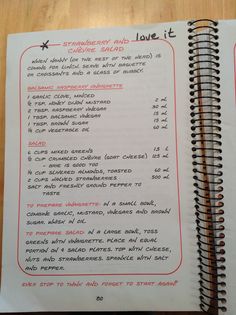 * love it
STRAWBERRY AND
CHÈVRE SALAD
WHEN NANNY (OR THE REST OF THE HERD) IS
COMING FOR LUNCH. SERVE WITH BAGUETTE
OR CROISSANTS AND A GLASS OF BUBBLY.
BALSAMIC RASPBERRY VINAIGRETTE
1 GARLIC CLOVE, MINCED
1/2 TSP. HONEY DIJON MUSTARD 2 mL
2 TBSP. RASPBERRY VINEGAR 30 mL
1 TBSP. BALSAMIC VINEGAR 15 mL
1 TBSP. BROWN SUGAR 15 mL
1/4 CUP VEGETABLE OIL 60 mL
SALAD
6 CUPS MIXED GREENS 1.5 L
1/2 CUP CRUMBLED CHÈVRE (GOAT CHEESE) 125 mL
- BRIE IS GOOD TOO
1/4 CUP SLIVERED ALMONDS, TOASTED 60 mL
2 CUPS HALVED STRAWBERRIES 500 mL
SALT AND FRESHLY GROUND PEPPER TO
TASTE
TO PREPARE VINAIGRETTE: IN A SMALL BOWL,
COMBINE GARLIC, MUSTARD, VINEGARS AND BROWN
SUGAR. WHISK IN OIL.
TO PREPARE SALAD: IN A LARGE BOWL, TOSS
GREENS WITH VINAIGRETTE. PLACE AN EQUAL
PORTION ON 4 SALAD PLATES. TOP WITH CHEESE,
NUTS AND STRAWBERRIES. SPRINKLE WITH SALT
AND PEPPER.
EVER STOP TO THINK AND FORGET TO START AGAIN?
80